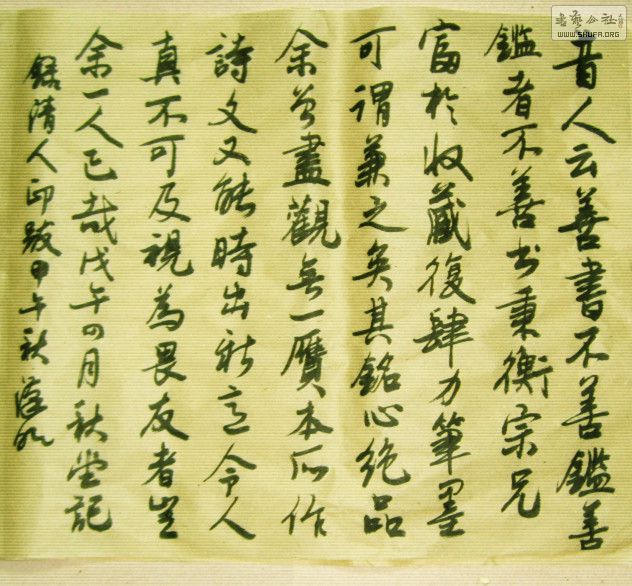 昔人云善書不善鑑善
鑑者不善书秉衡宗兄
富於收藏復肆力筆墨
可謂兼之矣其銘心绝品
余曾盡觀無一贋本而作
詩文又能時出新意令人
真不可及視為畏友者豈
余一人已哉戊午四月秋堂記
録清人印跋甲午秋
書艺公社
WWW.SHUFA.ORG